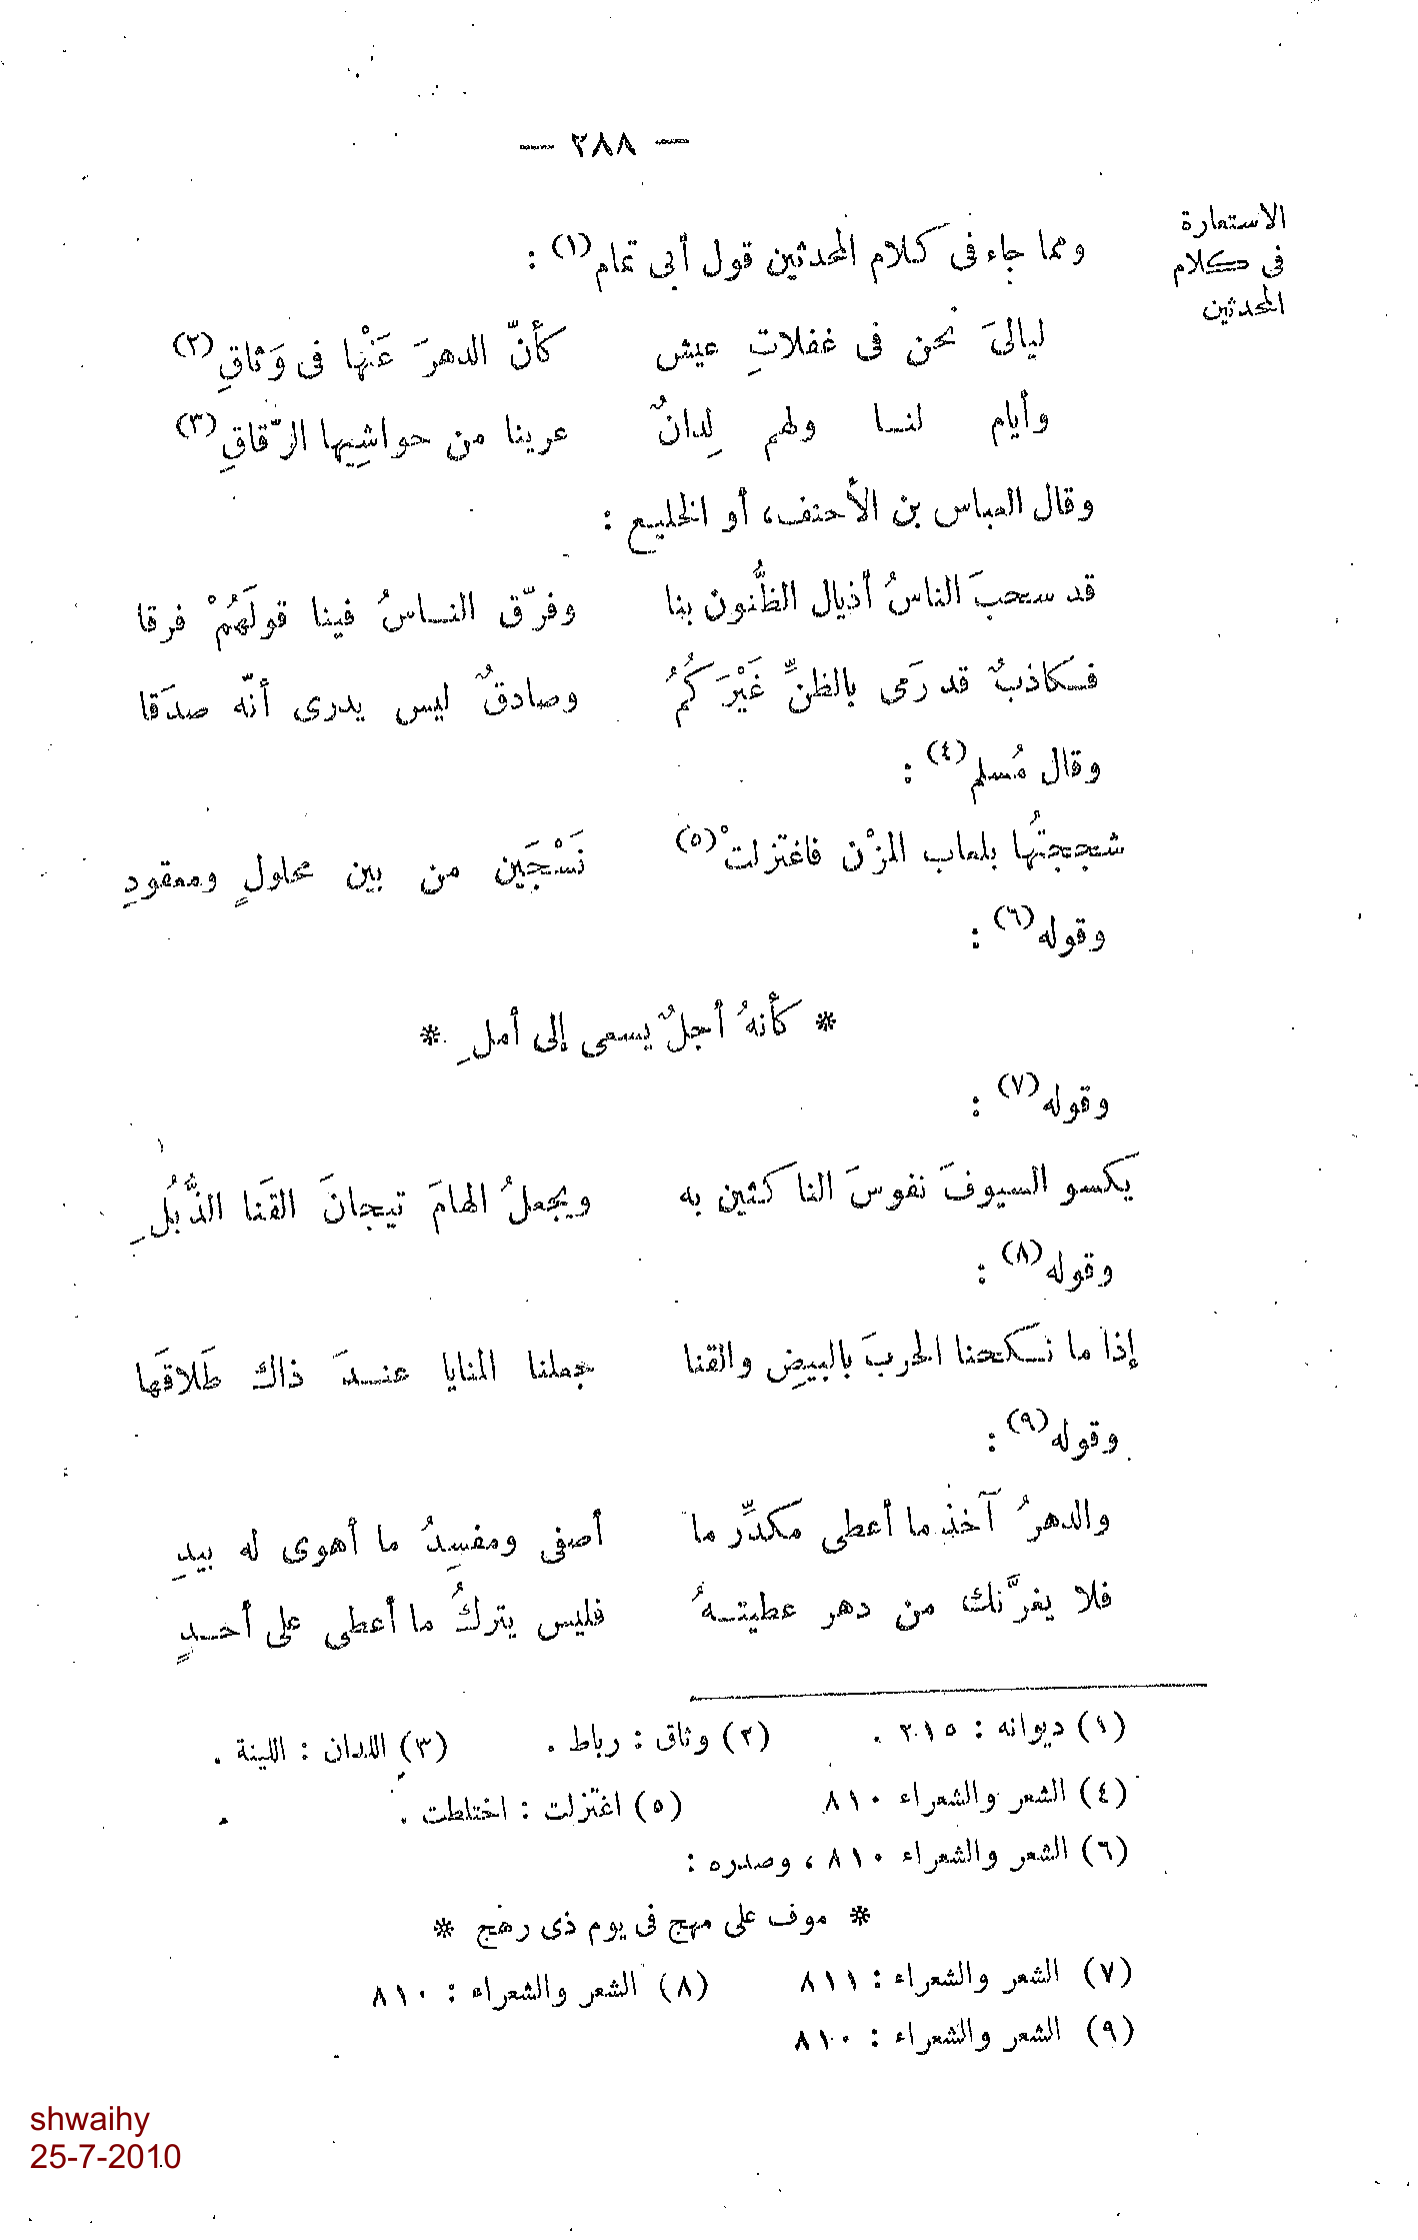 — ٢٨٨ —
الاستعارة
فى كلام
المحدثين
ومما جاء فى كلام المحدثين قول أبى تمام (١) :
ليالىَ نحن فى غفلاتِ عيش كأنّ الدهرَ عَنْها فى وَثاقِ (٢)
وأيام لنا ولهم لِدانٌ عرينا من حواشِيها الرّقاقِ (٣)
وقال العباس بن الأحنف، أو الخليع :
قد سحبَ الناسُ أذيال الظُّنون بنا وفرّق الناسُ فينا قولَهُمْ فرقا
فكاذبٌ قد رَمى بالظنِّ غَيْرَكُمُ وصادقٌ ليس يدرى أنّه صدَقا
وقال مُسلم (٤) :
شججتُها بلعاب المزْن فاغتزلتْ (٥) نَسْجَين من بين محلولٍ ومعقودِ
وقوله (٦) :
* كأنهُ أجلٌ يسعى إلى أملِ *
وقوله (٧) :
يكسو السيوفَ نفوسَ الناكثين به ويجعلُ الهامَ تيجانَ القَنا الذُّبُلِ
وقوله (٨) :
إذا ما نكحنا الحربَ بالبيضِ والقنا جعلنا المنايا عندَ ذاك طَلاقَها
وقوله (٩) :
والدهرُ آخذ ما أعطى مكدِّر ما أصفى ومفسِدُ ما أهوى له بيدِ
فلا يغرَّنك من دهر عطيتهُ فليس يتركُ ما أعطى على أحدٍ
(١) ديوانه : ٢١٥ . (٢) وثاق : رباط . (٣) اللدان : اللينة .
(٤) الشعر والشعراء ٨١٠ (٥) اغتزلت : اختلطت .
(٦) الشعر والشعراء ٨١٠ ، وصدره :
* موف على مهج فى يوم ذى رهج *
(٧) الشعر والشعراء : ٨١١ (٨) الشعر والشعراء : ٨١٠
(٩) الشعر والشعراء : ٨١٠
shwaihy
25-7-2010